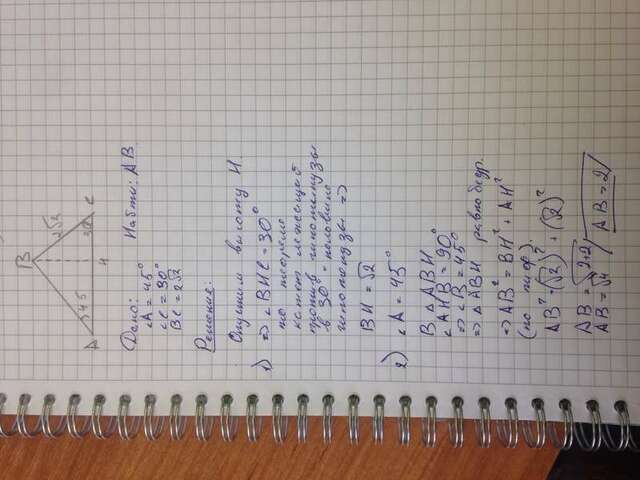 B
A
45
2√2
30
C
H
Дано:
Найти: AB.
∠A = 45°
∠C = 30°
BC = 2√2
Решение:
Опустим высоту H.
1) ⇒ ∠BHC = 30°
по теореме
катет лежащий
против гипотенузы
в 30° = половине
гипотенузы ⇒
BH = √2
2) ∠A = 45°
В △ABH
∠AHB = 90°
⇒ ∠B = 45°
⇒ △ABH равнобедр.
⇒ AB² = BH² + AH²
(по пиф).
AB² = (√2)² + (√2)²
AB = √2+2
AB = √4 / AB = 2 /